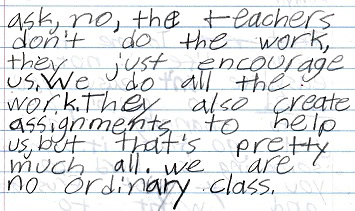 ask, no, the teachers
don't do the work,
they just encourage
us. We do all the
work. They also create
assignments to help
us, but that's pretty
much all. we are
no ordinary class.